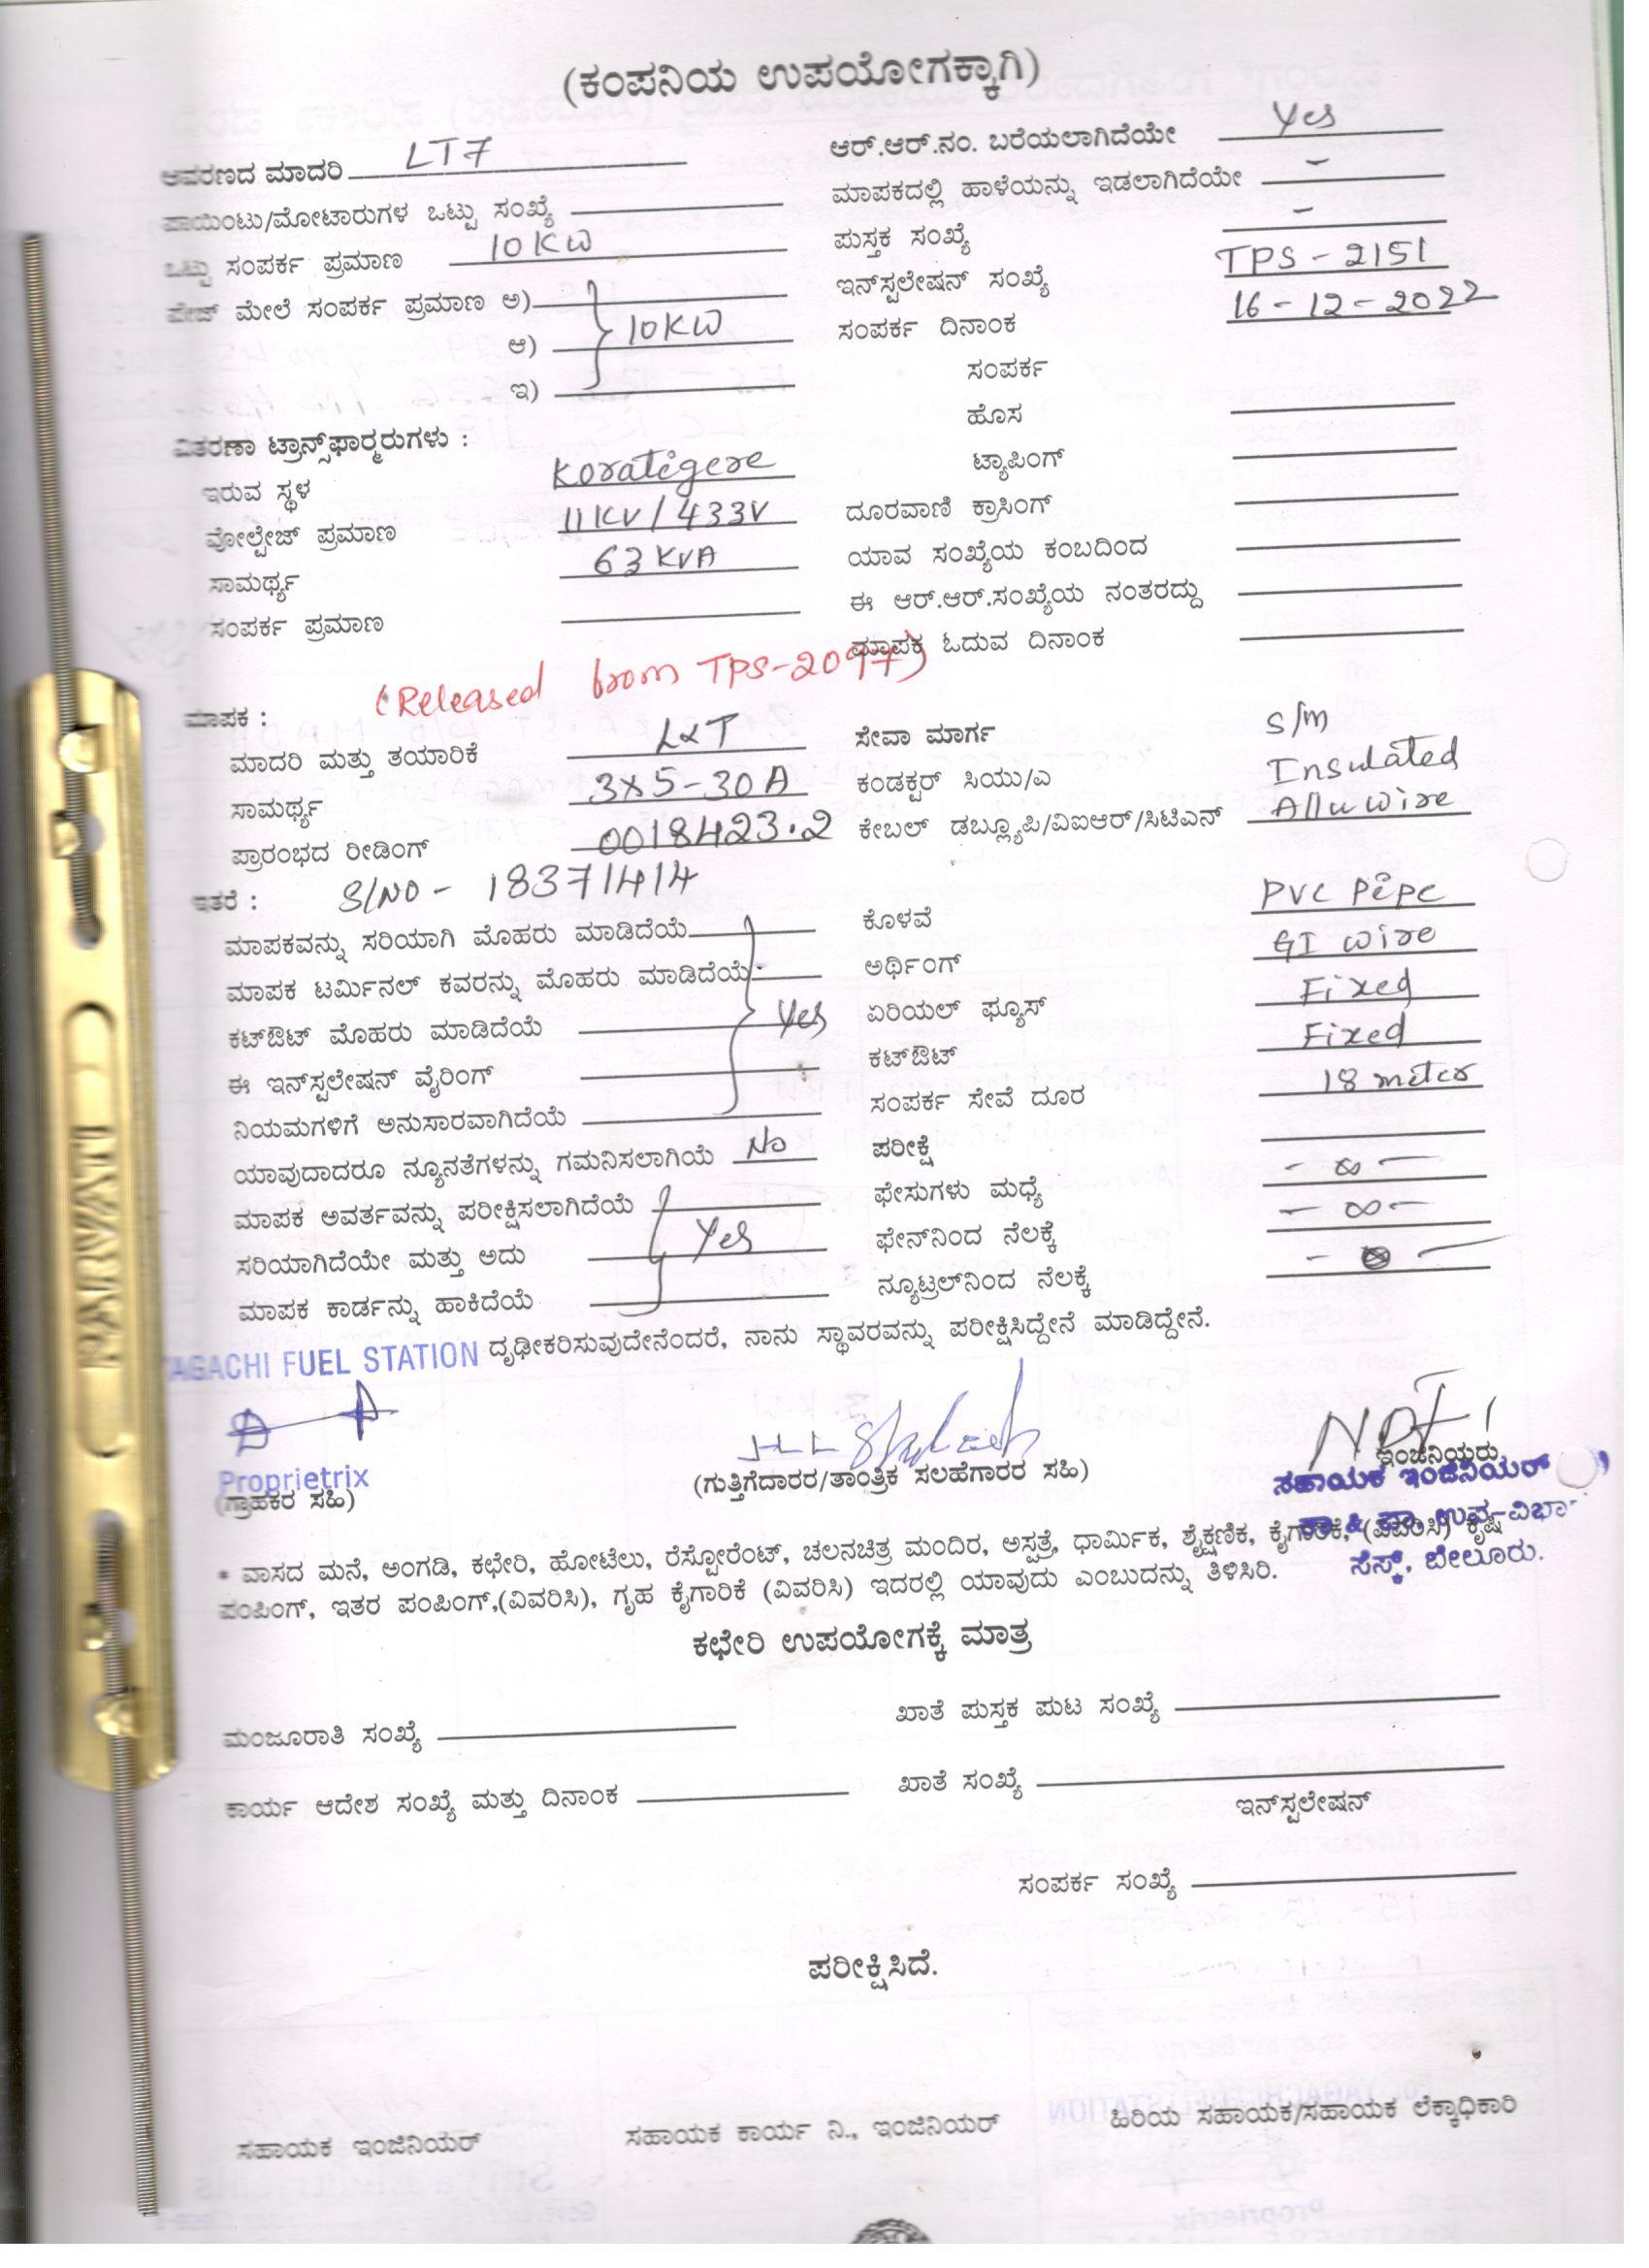 (ಕಂಪನಿಯ ಉಪಯೋಗಕ್ಕಾಗಿ)
ಆವರಣದ ಮಾದರಿ LT7
ಪಾಯಿಂಟು/ಮೋಟಾರುಗಳ ಒಟ್ಟು ಸಂಖ್ಯೆ
ಒಟ್ಟು ಸಂಪರ್ಕ ಪ್ರಮಾಣ 10 KW
ಪೇಜ್ ಮೇಲೆ ಸಂಪರ್ಕ ಪ್ರಮಾಣ ಅ)
ಆ) 10KW
ಇ)
ವಿತರಣಾ ಟ್ರಾನ್ಸ್‌ಫಾರ್‍ಮರುಗಳು :
ಇರುವ ಸ್ಥಳ Koratigere
ವೋಲ್ಟೇಜ್ ಪ್ರಮಾಣ 11KV / 433V
ಸಾಮರ್ಥ್ಯ 63 KVA
ಸಂಪರ್ಕ ಪ್ರಮಾಣ
ಆರ್.ಆರ್.ನಂ. ಬರೆಯಲಾಗಿದೆಯೇ Yes
ಮಾಪಕದಲ್ಲಿ ಹಾಳೆಯನ್ನು ಇಡಲಾಗಿದೆಯೇ -
ಪುಸ್ತಕ ಸಂಖ್ಯೆ -
ಇನ್‌ಸ್ಟಲೇಷನ್ ಸಂಖ್ಯೆ TPS - 2151
ಸಂಪರ್ಕ ದಿನಾಂಕ 16 - 12 - 2022
ಸಂಪರ್ಕ
ಹೊಸ
ಟ್ಯಾಪಿಂಗ್
ದೂರವಾಣಿ ಕ್ರಾಸಿಂಗ್
ಯಾವ ಸಂಖ್ಯೆಯ ಕಂಬದಿಂದ
ಈ ಆರ್.ಆರ್.ಸಂಖ್ಯೆಯ ನಂತರದ್ದು
ಮಾಪಕ ಓದುವ ದಿನಾಂಕ
(Released from TPS-2097)
ಮಾಪಕ :
ಮಾದರಿ ಮತ್ತು ತಯಾರಿಕೆ L&T
ಸಾಮರ್ಥ್ಯ 3x5-30A
ಪ್ರಾರಂಭದ ರೀಡಿಂಗ್ 0018423.2
ಇತರೆ : S/NO - 18371414
ಮಾಪಕವನ್ನು ಸರಿಯಾಗಿ ಮೊಹರು ಮಾಡಿದೆಯೆ
ಮಾಪಕ ಟರ್ಮಿನಲ್ ಕವರನ್ನು ಮೊಹರು ಮಾಡಿದೆಯೆ
ಕಟ್‌ಔಟ್ ಮೊಹರು ಮಾಡಿದೆಯೆ Yes
ಈ ಇನ್‌ಸ್ಟಲೇಷನ್ ವೈರಿಂಗ್
ನಿಯಮಗಳಿಗೆ ಅನುಸಾರವಾಗಿದೆಯೆ
ಯಾವುದಾದರೂ ನ್ಯೂನತೆಗಳನ್ನು ಗಮನಿಸಲಾಗಿಯೆ No
ಮಾಪಕ ಅವರ್ತವನ್ನು ಪರೀಕ್ಷಿಸಲಾಗಿದೆಯೆ
ಸರಿಯಾಗಿದೆಯೇ ಮತ್ತು ಅದು Yes
ಮಾಪಕ ಕಾರ್ಡನ್ನು ಹಾಕಿದೆಯೆ
ಸೇವಾ ಮಾರ್ಗ S/m
ಕಂಡಕ್ಟರ್ ಸಿಯು/ಎ Insulated
ಕೇಬಲ್ ಡಬ್ಲ್ಯೂಪಿ/ವಿಐಆರ್/ಸಿಟಿಎನ್ Allu wire
ಕೊಳವೆ PVC Pipe
ಅರ್ಥಿಂಗ್ GI wire
ಏರಿಯಲ್ ಫ್ಯೂಸ್ Fixed
ಕಟ್‌ಔಟ್ Fixed
ಸಂಪರ್ಕ ಸೇವೆ ದೂರ 18 meter
ಪರೀಕ್ಷೆ
ಫೇಸುಗಳು ಮಧ್ಯೆ - ∞ -
ಫೇನ್‌ನಿಂದ ನೆಲಕ್ಕೆ - ∞ -
ನ್ಯೂಟ್ರಲ್‌ನಿಂದ ನೆಲಕ್ಕೆ
AGACHI FUEL STATION ದೃಢೀಕರಿಸುವುದೇನೆಂದರೆ, ನಾನು ಸ್ಥಾವರವನ್ನು ಪರೀಕ್ಷಿಸಿದ್ದೇನೆ ಮಾಡಿದ್ದೇನೆ.
Proprietrix
(ಗ್ರಾಹಕರ ಸಹಿ)
(ಗುತ್ತಿಗೆದಾರರ/ತಾಂತ್ರಿಕ ಸಲಹೆಗಾರರ ಸಹಿ)
ಇಂಜಿನಿಯರು
ಸಹಾಯಕ ಇಂಜಿನಿಯರ್
ಉಪ-ವಿಭಾ
ಸೆಸ್ಕ್, ಬೇಲೂರು.
* ವಾಸದ ಮನೆ, ಅಂಗಡಿ, ಕಛೇರಿ, ಹೋಟೆಲು, ರೆಸ್ಟೋರೆಂಟ್, ಚಲನಚಿತ್ರ ಮಂದಿರ, ಅಸ್ಪತ್ರೆ, ಧಾರ್ಮಿಕ, ಶೈಕ್ಷಣಿಕ, ಕೈಗಾರಿಕೆ, (ವಿವರಿಸಿ) ಕೃಷಿ
ಪಂಪಿಂಗ್, ಇತರ ಪಂಪಿಂಗ್,(ವಿವರಿಸಿ), ಗೃಹ ಕೈಗಾರಿಕೆ (ವಿವರಿಸಿ) ಇದರಲ್ಲಿ ಯಾವುದು ಎಂಬುದನ್ನು ತಿಳಿಸಿರಿ.
ಕಛೇರಿ ಉಪಯೋಗಕ್ಕೆ ಮಾತ್ರ
ಮಂಜೂರಾತಿ ಸಂಖ್ಯೆ
ಖಾತೆ ಪುಸ್ತಕ ಪುಟ ಸಂಖ್ಯೆ
ಕಾರ್ಯ ಆದೇಶ ಸಂಖ್ಯೆ ಮತ್ತು ದಿನಾಂಕ
ಖಾತೆ ಸಂಖ್ಯೆ
ಇನ್‌ಸ್ಟಲೇಷನ್
ಸಂಪರ್ಕ ಸಂಖ್ಯೆ
ಪರೀಕ್ಷಿಸಿದೆ.
ಸಹಾಯಕ ಇಂಜಿನಿಯರ್
ಸಹಾಯಕ ಕಾರ್ಯ ನಿ., ಇಂಜಿನಿಯರ್
ಹಿರಿಯ ಸಹಾಯಕ/ಸಹಾಯಕ ಲೆಕ್ಕಾಧಿಕಾರಿ